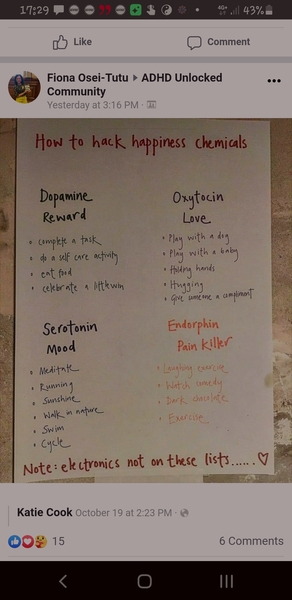 17:29
43%
Like
Comment
Fiona Osei-Tutu ▸ ADHD Unlocked
Community
Yesterday at 3:16 PM ·
How to hack happiness chemicals
Dopamine
Reward
• complete a task
• do a self care activity
• eat food
• celebrate a little win
Oxytocin
Love
• Play with a dog
• Play with a baby
• Holding hands
• Hugging
• Give someone a compliment
Serotonin
Mood
• Meditate
• Running
• Sunshine
• Walk in nature
• Swim
• Cycle
Endorphin
Pain Killer
• Laughing exercise
• Watch comedy
• Dark chocolate
• Exercise
Note: electronics not on these lists......♡
Katie Cook October 19 at 2:23 PM ·
15
6 Comments